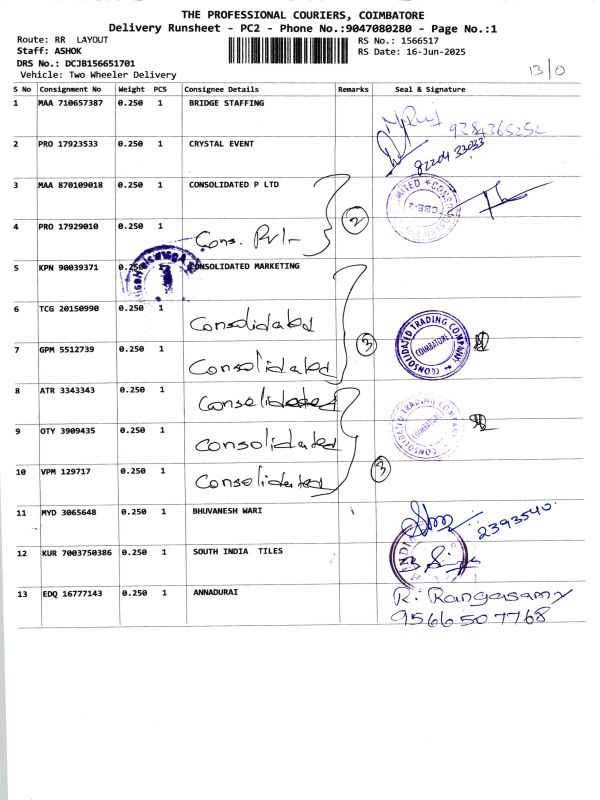 THE PROFESSIONAL COURIERS, COIMBATORE
Delivery Runsheet - PC2 - Phone No.:9047080280 - Page No.:1
Route: RR LAYOUT
RS No.: 1566517
Staff: ASHOK
RS Date: 16-Jun-2025
DRS No.: DCJB156651701
Vehicle: Two Wheeler Delivery
13/0
S No Consignment No Weight PCS Consignee Details Remarks Seal & Signature
1 MAA 710657387 0.250 1 BRIDGE STAFFING
9384365252
2 PRO 17923533 0.250 1 CRYSTAL EVENT
82204 33033
3 MAA 870109018 0.250 1 CONSOLIDATED P LTD
4 PRO 17929010 0.250 1 Cons. Pvt- 2
5 KPN 90039371 0.250 1 CONSOLIDATED MARKETING
6 TCG 20150990 0.250 1 Consolidated
7 GPM 5512739 0.250 1 Consolidated 3
CONSOLIDATED TRADING COMPANY
COIMBATORE
8 ATR 3343343 0.250 1 Consolidated
9 OTY 3909435 0.250 1 Consolidated
CONSOLIDATED TRADING COMPANY
COIMBATORE
10 VPM 129717 0.250 1 Consolidated 3
11 MYD 3065648 0.250 1 BHUVANESH WARI
2393540
12 KUR 7003750386 0.250 1 SOUTH INDIA TILES
13 EDQ 16777143 0.250 1 ANNADURAI R. Rangasamy
9566507768